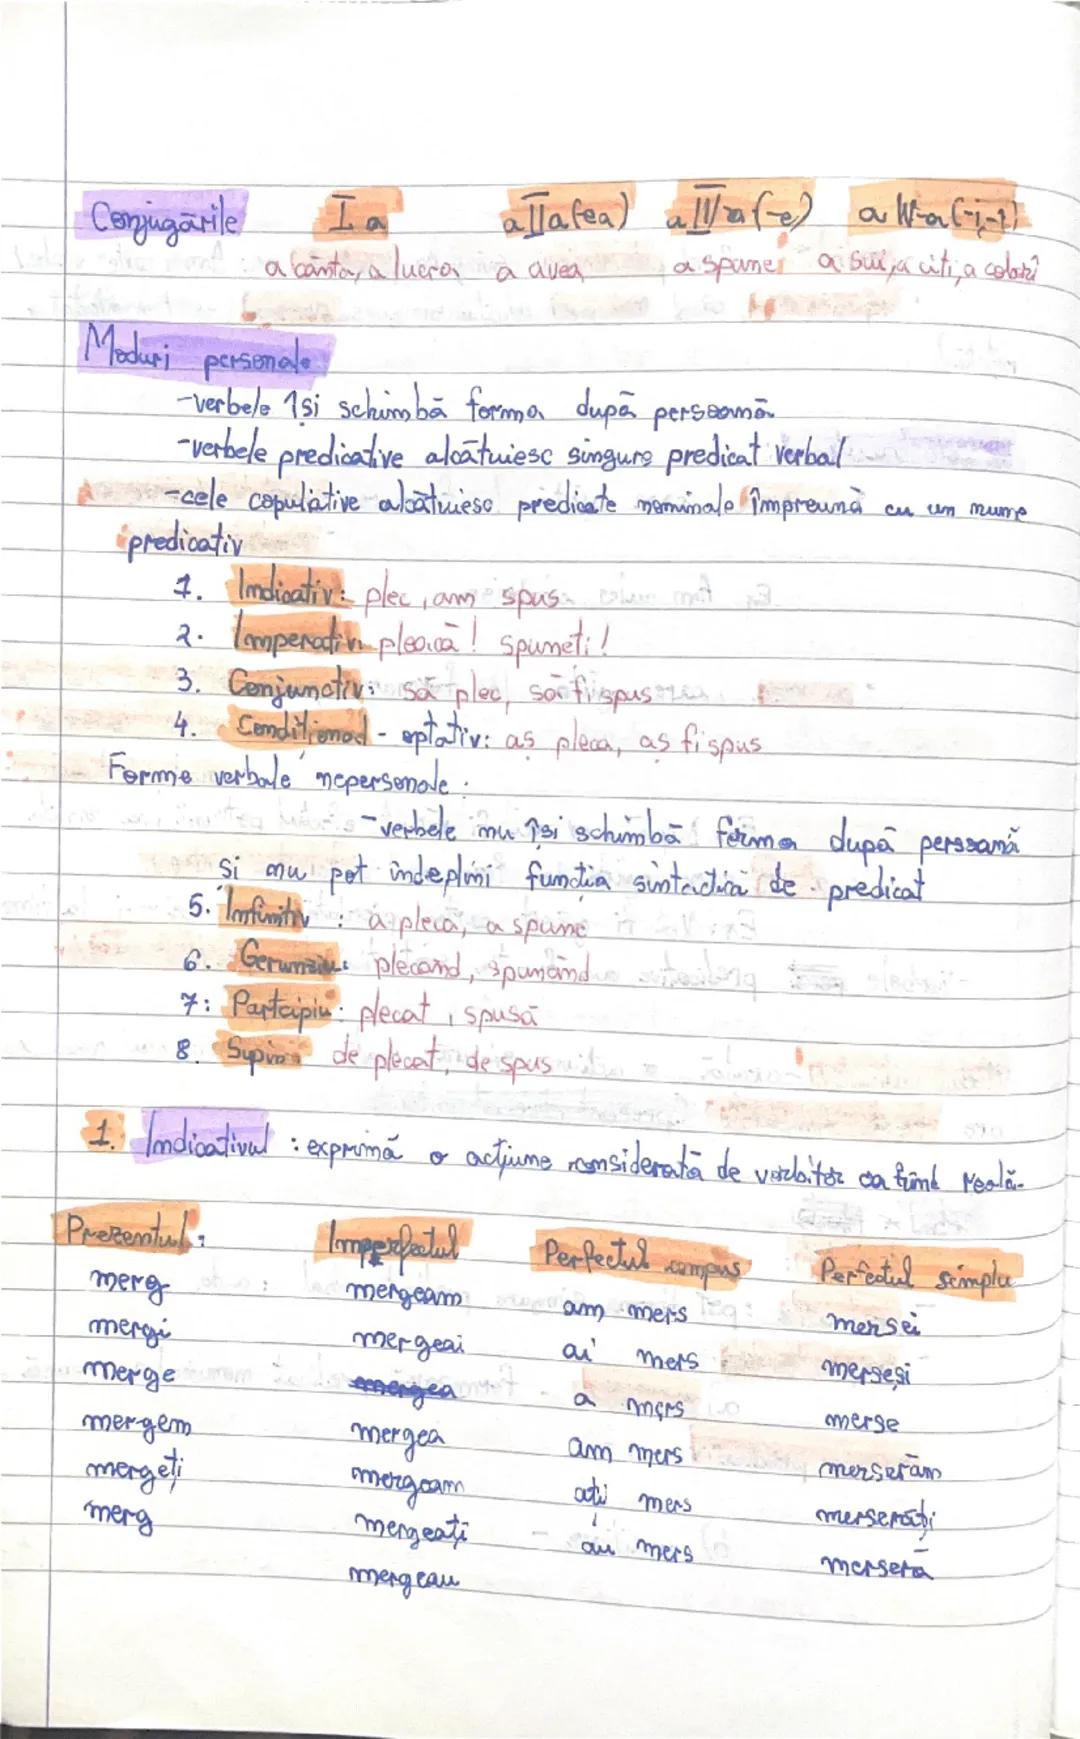 Conjugările I a a II a (ea) a III a (-e) a IV-a (-i,-î)
a cânta, a lucra a avea a spune a sui, a citi, a coborî
Moduri personale
-verbele își schimbă forma după persoană
-verbele predicative alcătuiesc singure predicat verbal
-cele copulative alcătuiesc predicate nominale împreună cu un nume
predicativ
1. Indicativ: plec, am spus
2. Imperativ: pleacă! Spuneti!
3. Conjunctiv: să plec, să fi spus
4. Condițional - optativ: aș pleca, aș fi spus
Forme verbale nepersonale:
-verbele nu își schimbă forma după persoană
și nu pot îndeplini funcția sintactică de predicat
5. Infinitiv: a pleca, a spune
6. Gerunziu: plecând, spunând
7: Partcipiu: plecat, spusă
8. Supin: de plecat, de spus
1. Indicativul: exprimă o acțiune considerată de vorbitor ca fiind reală.
Prezentul: Imperfectul Perfectul compus Perfectul simplu
merg mergeam am mers mersei
mergi mergeai ai mers merseși
merge mergea a mers merse
mergem mergea am mers merserăm
mergeți mergeam ați mers merserăți
merg mergeați au mers merseră
mergeau